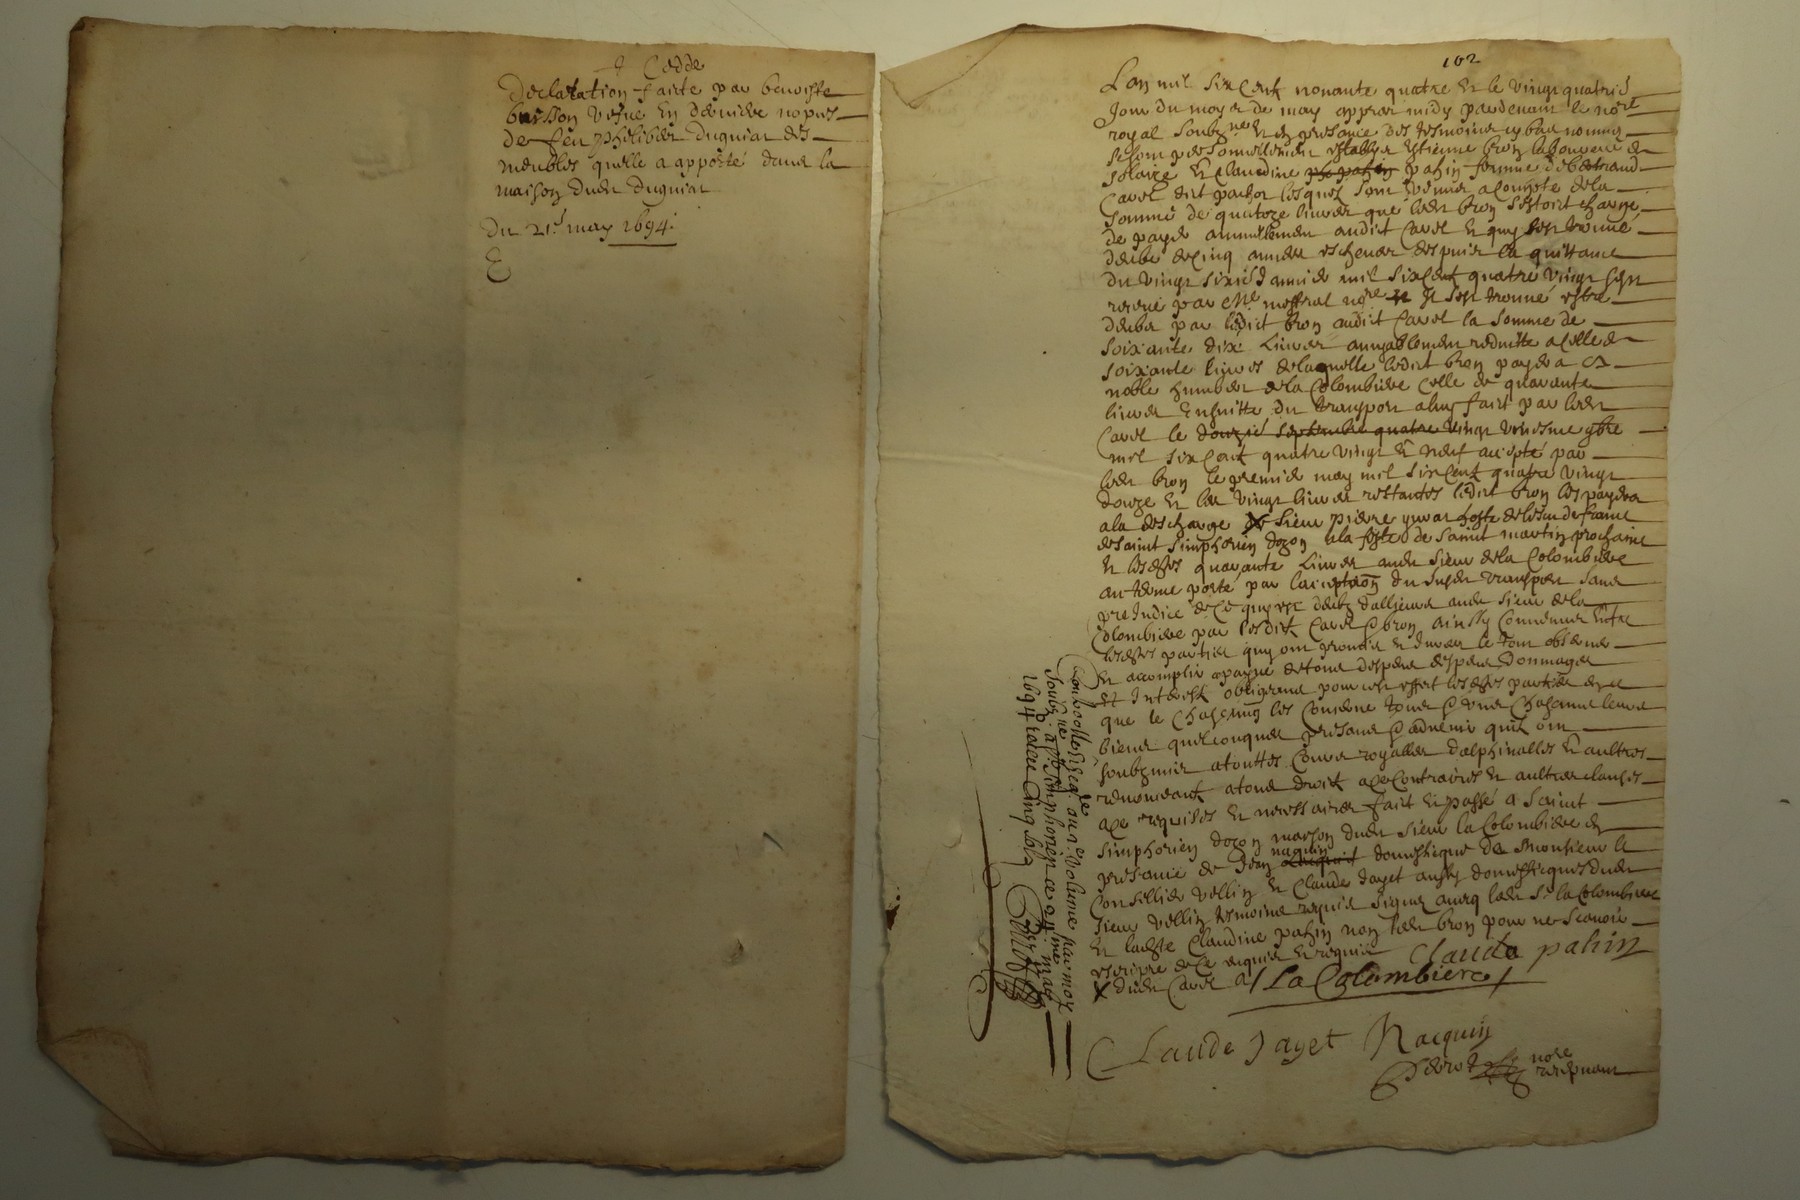 Cedde
Declaration faite par benoiste
buisson vefue en derniere nopces
de feu philiber duguiat des
meubles quelle a apporté dans la
maison dudt duguiat
du 21e may 1694.
102
Lan mil six cent nonante quatre et le vingt quatries
jour du moys de may appres midy pardevant le nore
royal soubzne et en presance des tesmoins cy bas nommes
se sont personnellement estably estienne bron laboureur de
solaize et Claudine pahin femme de bertrand
Cavel dict pachot lesquels sont venus a compte de la
somme de quatoze livres que ledt bron sestoit chargé
de payer annuellement audict Cavel et quy sest trouvé
debvoir de cinq annees escheues despuis la quittance
du vingt sixies mil six cent quatre vingt sept
receue par me nore il sest trouvé estre
deube par ledict bron audict Cavel la somme de
soixante dix livres amyablement reduitte a celle de
soixante livres de laquelle ledict bron payera a
noble humber de la Colombiere celle de quarante
livres ensuitte du transport a luy faict par ledt
Cavel le douzie septembre quatre vingt 9bre
mil six cent quatre vingt et neuf accepté par
ledt bron le premier may mil six cent quatre vingt
douze et les vingt livres restantes ledict bron les payera
a la descharge X sieur pierre hoste de lescu de france
de saint simphorien dozon a la feste de saint martin prochaine
et lesdtes quarante livres audt sieur de la Colombiere
au terme porté par lacceptaon du susdt transport sans
prejudice de ce quy est deub dallieurs audt sieur de la
Colombiere par lesdict Cavel & bron ainssy convenus entre
lesdtes parties quy ont promis et jurer le tout observer
et accomplir a payne de tous despens dommages
et interest obligeans pour cest effect lesdtes parties
que le chascung les concerne tous & ungs chascuns leurs
biens quelconques presans & advenir quils ont
soubzmis a touttes Cours royalles dalphinalles et aultres
renonceant a tous droict a ce contraires et aultres clauses
a ce requises et necessaires fait et passé a saint
simphorien dozon maison dudt sieur la Colombiere en
presance de jean naquin domestique de monsieur le
Conseillier vellin et Claude jayet aussy domestiques dudt
sieur vellin tesmoins requis signes avecq ledt sr la Colombiere
et ladte Claudine pahin non ledt bron pour ne scavoir
escripre de ce enquis et requis Claude pahin
X dudt Cavel a La Colombiere
Claude Jayet Nacquin
nore
recepvant
Controollé & au 1er volume par moy
soubzné a St Simphorien ce 24me may
1694 receu cinq solz